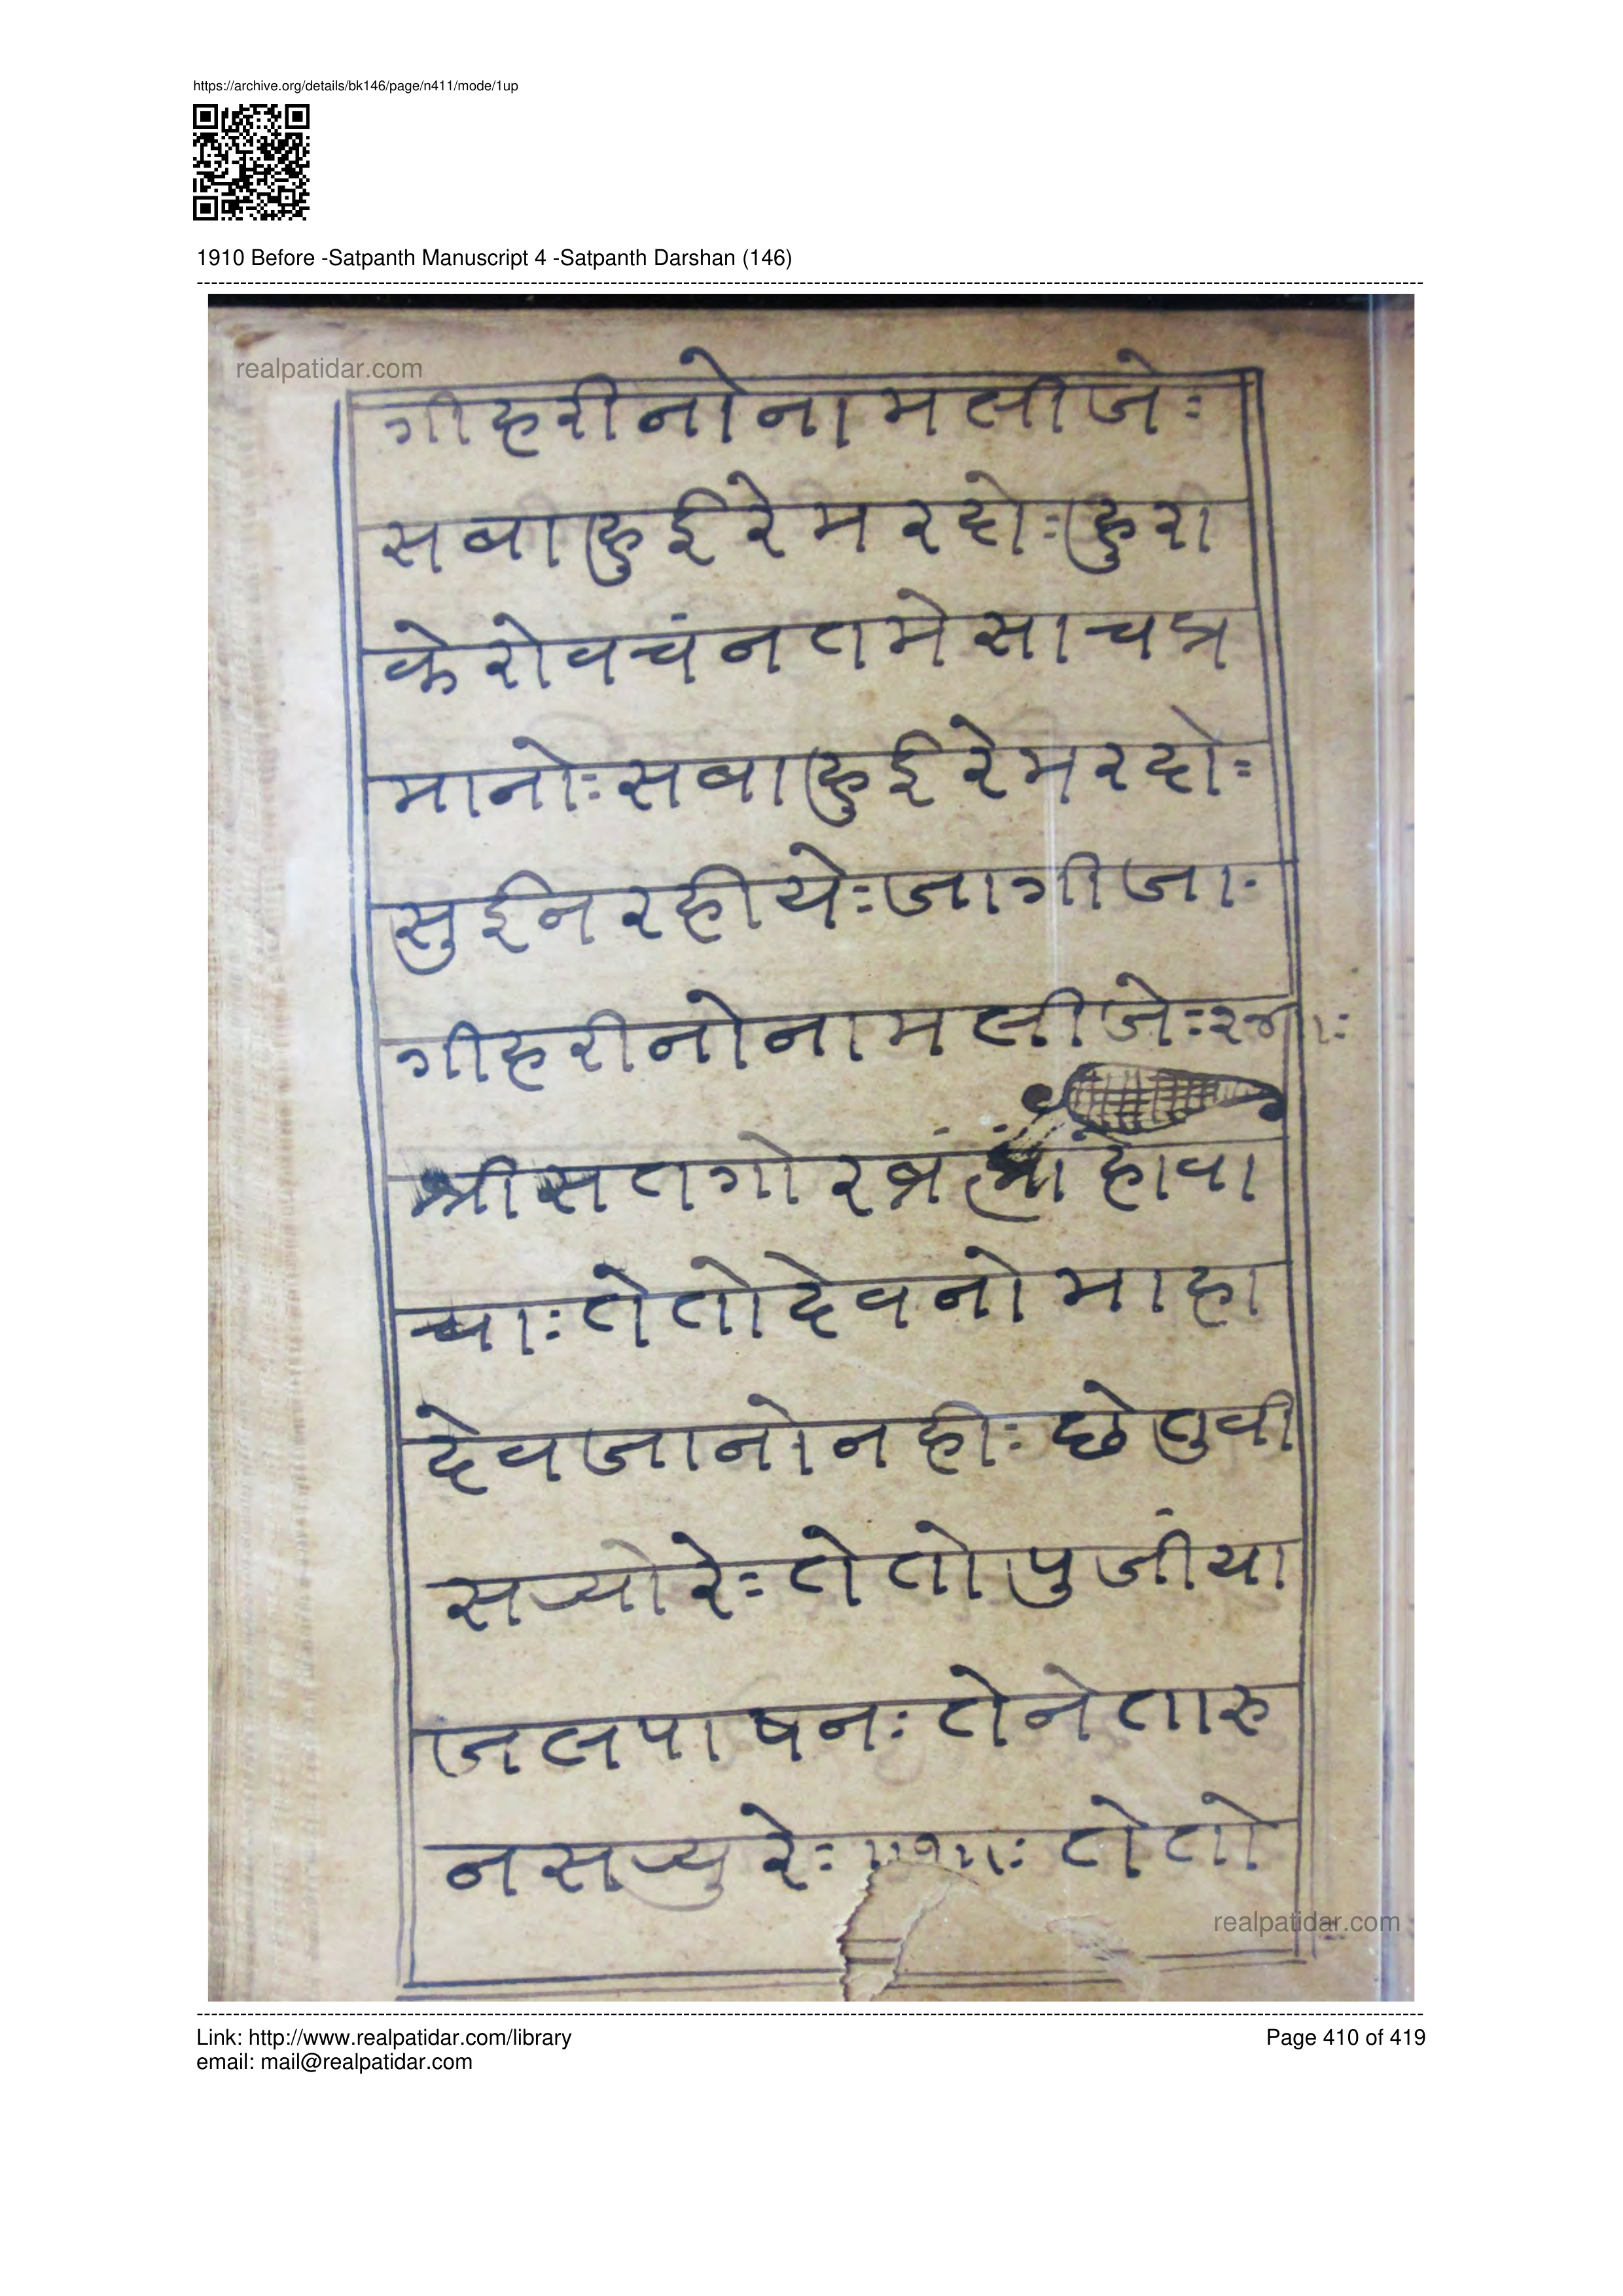 https://archive.org/details/bk146/page/n411/mode/1up
1910 Before -Satpanth Manuscript 4 -Satpanth Darshan (146)
realpatidar.com
गी हरी नो नाम लीजेः
सवा हुई रे मरदोः हुरी
के रो वचंन तमे साच प्र
मानोः सवा हुई रे मरदोः
सुई न रहीयेः जागी जाः
गी हरी नो नाम लीजेः
श्री सत गोर
चाः ते तो देव नो माहा
देव जानो नहीः छे तुवी
रेः ते तो पुजींया
जल पाषनः तेने तारु
न रेः ॥१॥ः ते तो
realpatidar.com
Link: http://www.realpatidar.com/library
Page 410 of 419
email: mail@realpatidar.com